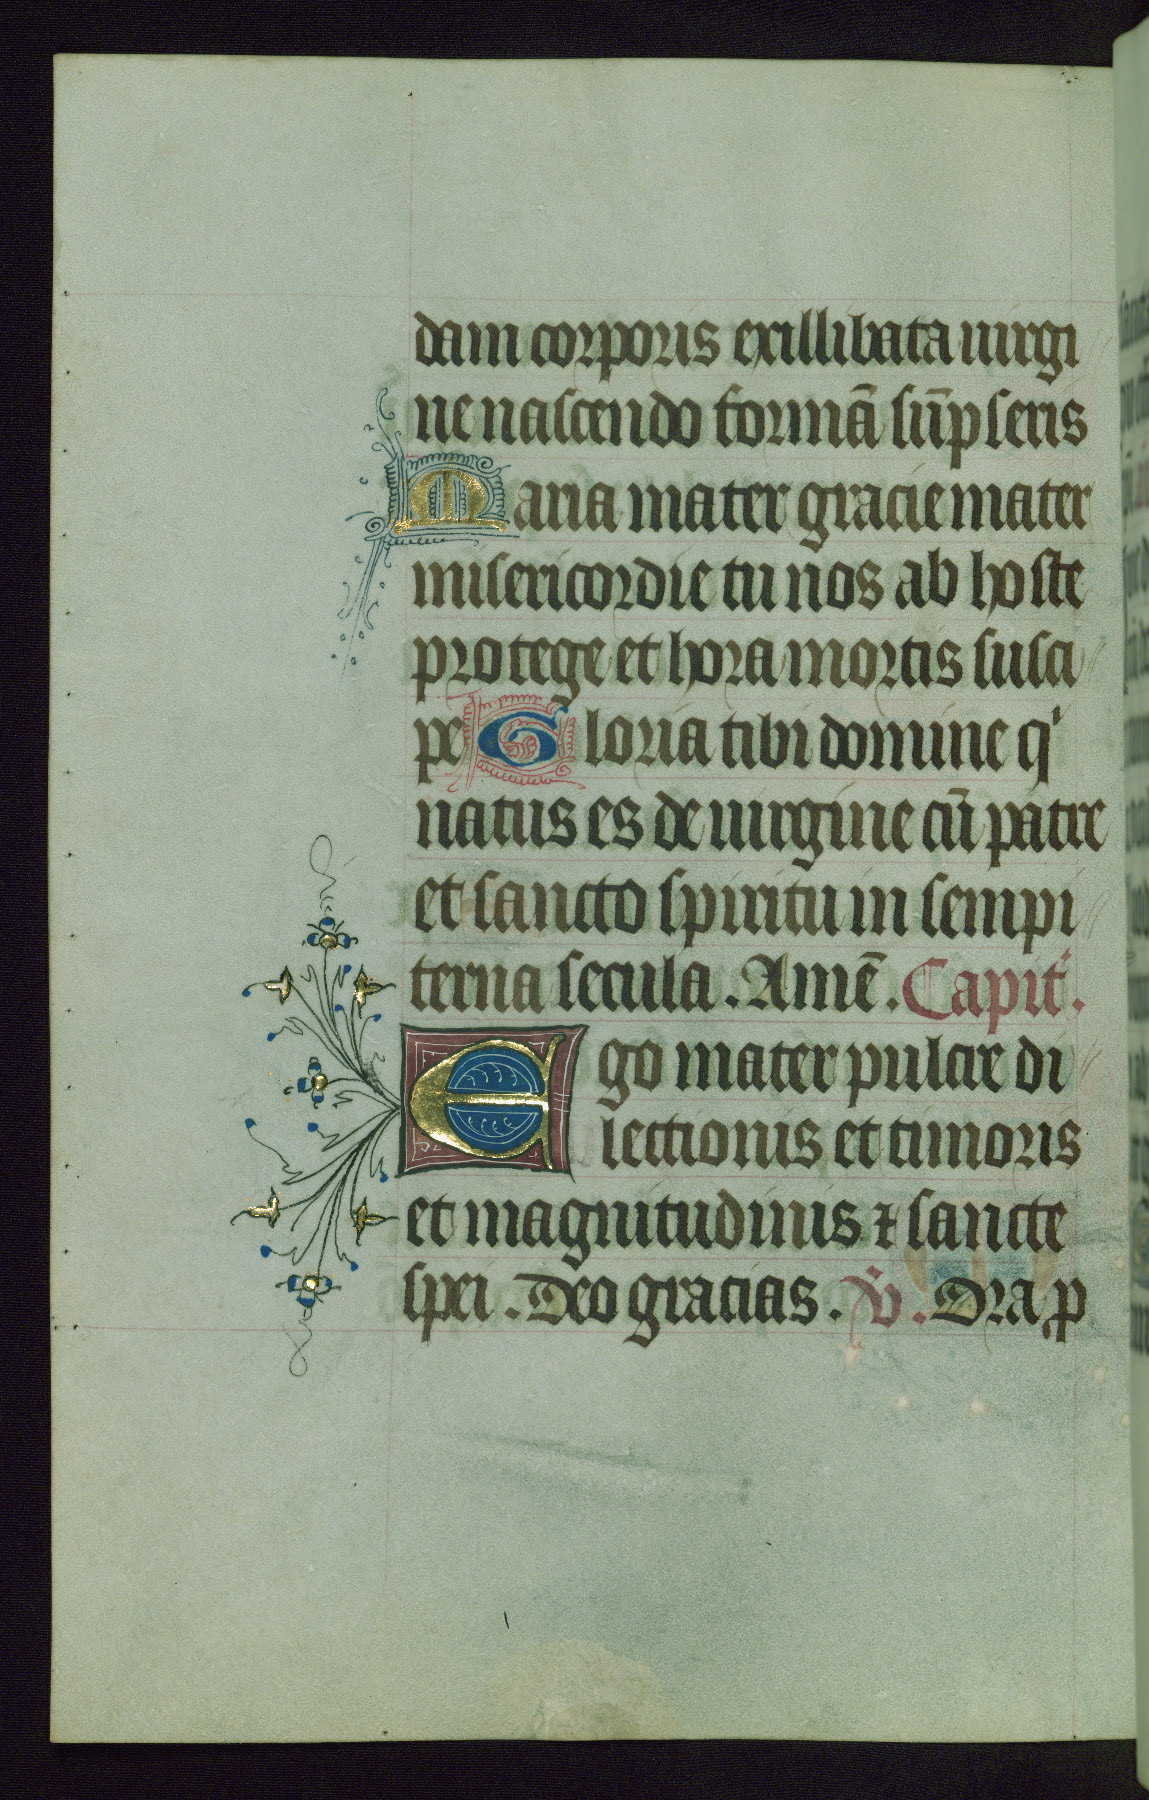 dam corporis exillibata uirgi
ne nascendo formā sūpseris
Maria mater gracie mater
misericordie tu nos ab hoste
protege et hora mortis susci
pe Gloria tibi domine qⁱ
natus es de uirgine cū patre
et sancto spiritu in sempi
terna secula. Amē. Capitᷓ.
Ego mater pulcre di
lectionis et timoris
et magnitudinis ⁊ sancte
spei. Deo gracias. ℣. Ora ꝓ